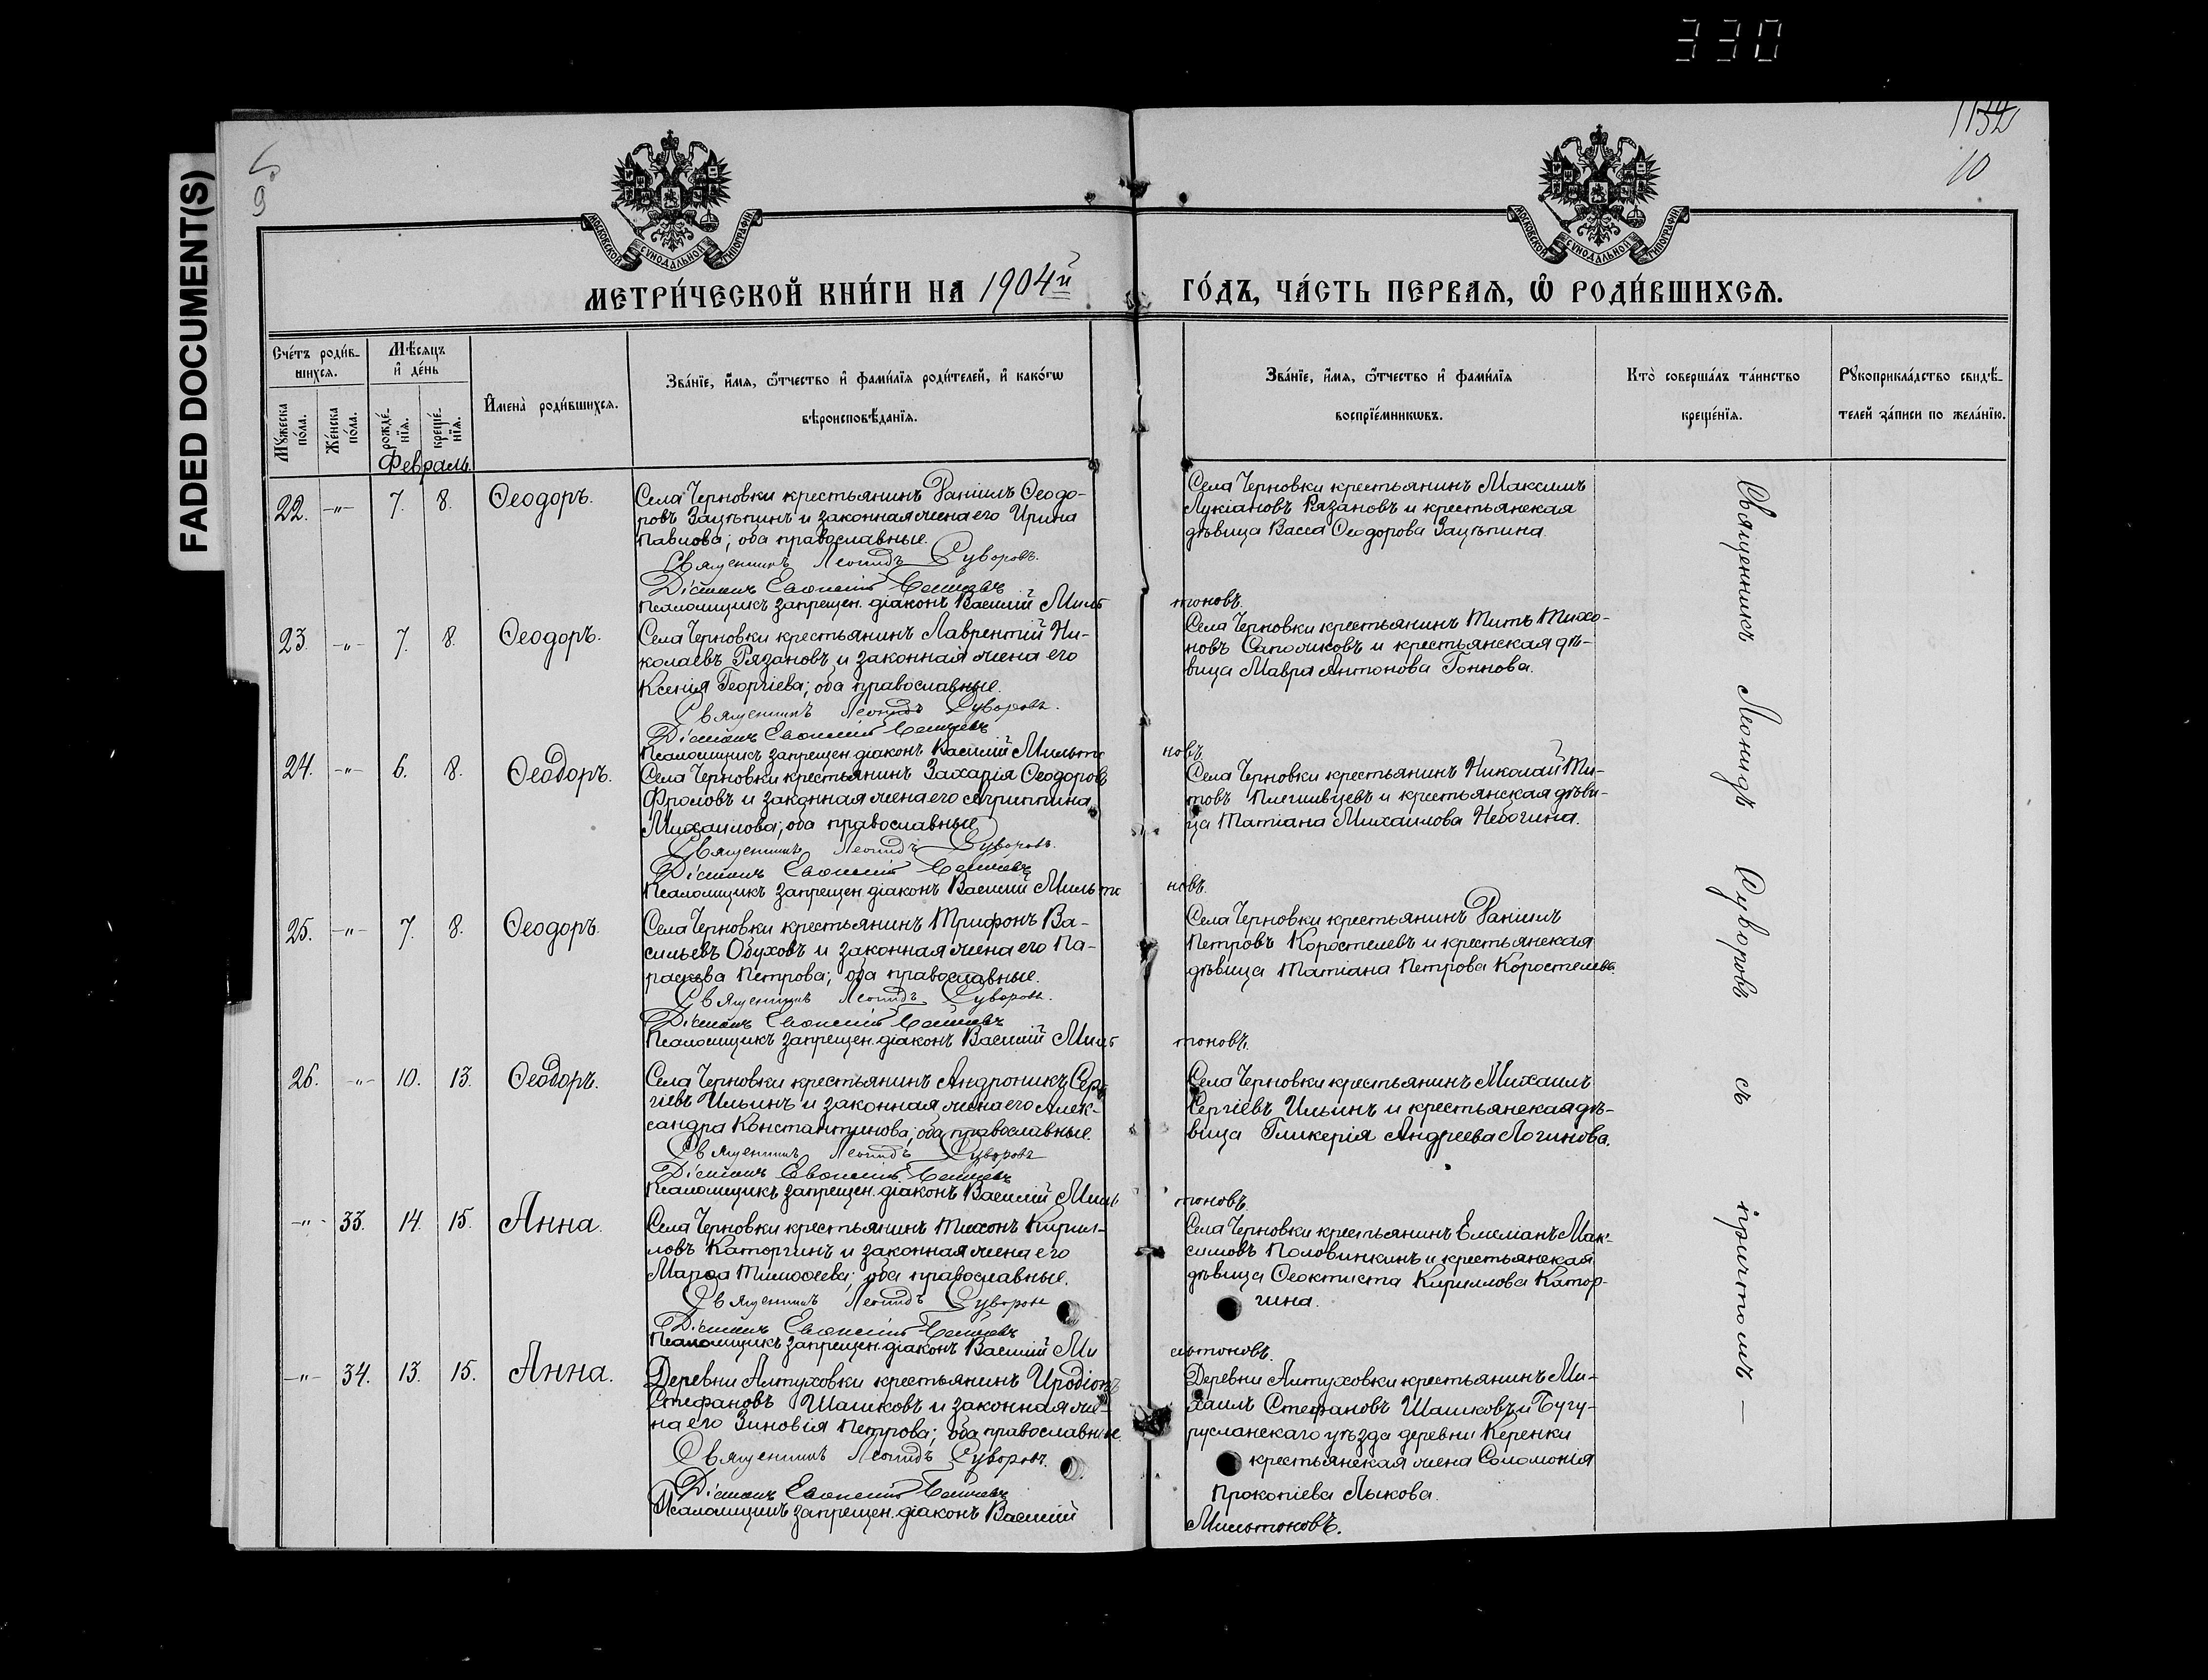 330
FADED DOCUMENT(S)
9
10
МОСКОВСКОЙ СѴНОДАЛЬНОЙ ТИПОГРАФІИ
МОСКОВСКОЙ СѴНОДАЛЬНОЙ ТИПОГРАФІИ
МЕТРИ́ЧЕСКОЙ КНИ́ГИ НА 1904й
ГО́ДЪ, ЧА́СТЬ ПЕРВАѦ, Ѡ РОДИ́ВШИХСѦ.
Сче́тъ роди́в-
шихсѧ.
Мꙋ́жеска по́ла.
Же́нска по́ла.
Мѣ́сѧцъ
и҆ де́нь
рожде́-
нїѧ.
креще́-
нїѧ.
И҆мена̀ роди́вшихсѧ.
Зва́нїе, и҆́мѧ, ѻ҆́тчество и҆ фами́лїѧ роди́телей, и҆ како́гѡ
вѣроисповѣ́данїѧ.
Зва́нїе, и҆́мѧ, ѻ҆́тчество и҆ фами́лїѧ
воспрїе́мникѡвъ.
Кто̀ соверша́лъ та́инство
креще́нїѧ.
Рꙋкоприкла́дство свидѣ́-
телей за́писи по жела́нїю.
Февраль.
22. -"- 7. 8. Ѳеодоръ.
Села Черновки крестьянинъ Даніилъ Ѳеодо-
ровъ Зацѣпинъ и законная жена его Ирина
Павлова; оба православные.
Священникъ Леонидъ Суворовъ.
Діаконъ Евѳимій
Псаломщикъ запрещен. діаконъ Василій Мильтоновъ.
Села Черновки крестьянинъ Максимъ
Лукіановъ Рязановъ и крестьянская
дѣвица Васса Ѳеодорова Зацѣпина
23. -"- 7. 8. Ѳеодоръ.
Села Черновки крестьянинъ Лаврентій Ни-
колаевъ Рязановъ и законная жена его
Ксенія Георгіева; оба православные.
Священникъ Леонидъ Суворовъ.
Діаконъ Евѳимій
Псаломщикъ запрещен. діаконъ Василій Мильтоновъ.
Села Черновки крестьянинъ Титъ Тихо-
новъ Сапожковъ и крестьянская дѣ-
вица Мавра Антонова Гоннова.
24. -"- 6. 8. Ѳеодоръ.
Села Черновки крестьянинъ Захарія Ѳеодоровъ
Фроловъ и законная жена его Агриппина
Михаилова; оба православные
Священникъ Леонидъ Суворовъ.
Діаконъ Евѳимій
Псаломщикъ запрещен. діаконъ Василій Мильтоновъ.
Села Черновки крестьянинъ Николай Ти-
товъ Плешивцевъ и крестьянская дѣви-
ца Татіана Михаилова
25. -"- 7. 8. Ѳеодоръ.
Села Черновки крестьянинъ Трифонъ Ва-
сильевъ Обуховъ и законная жена его Па-
раскева Петрова; оба православные.
Священникъ Леонидъ Суворовъ.
Діаконъ Евѳимій
Псаломщикъ запрещен. діаконъ Василій Мильтоновъ.
Села Черновки крестьянинъ Даніилъ
Петровъ Коростелевъ и крестьянская
дѣвица Татіана Петрова Коростелева.
26. -"- 10. 13. Ѳеодоръ.
Села Черновки крестьянинъ Андроникъ Сер-
гіевъ Ильинъ и законная жена его Алек-
сандра Константинова; оба православные.
Священникъ Леонидъ Суворовъ
Діаконъ Евѳимій
Псаломщикъ запрещен. діаконъ Василій Мильтоновъ.
Села Черновки крестьянинъ Михаилъ
Сергіевъ Ильинъ и крестьянская дѣ-
вица Гликерія Андреева Логинова.
-"- 33. 14. 15. Анна.
Села Черновки крестьянинъ Тихонъ Кирил-
ловъ Каторгинъ и законная жена его
Марѳа Тимоѳеева; оба православные.
Священникъ Леонидъ Суворовъ
Діаконъ Евѳимій
Псаломщикъ запрещен. діаконъ Василій Мильтоновъ.
Села Черновки крестьянинъ Емеліанъ Мак-
симовъ Половинкинъ и крестьянская
дѣвица Ѳеоктиста Кириллова Катор-
гина.
-"- 34. 13. 15. Анна.
Деревни Алтуховки крестьянинъ Иродіонъ
Стефановъ Шашковъ и законная же-
на его Зиновія Петрова; оба православные.
Священникъ Леонидъ Суворовъ.
Діаконъ Евѳимій
Псаломщикъ запрещен. діаконъ Василій
Мильтоновъ.
Деревни Алтуховки крестьянинъ Ми-
хаилъ Стефановъ Шашковъ и Бугу-
русланскаго уѣзда деревни Керенки
крестьянская жена Соломонія
Прокопіева Лыкова.
Священникъ Леонидъ Суворовъ съ причтомъ —